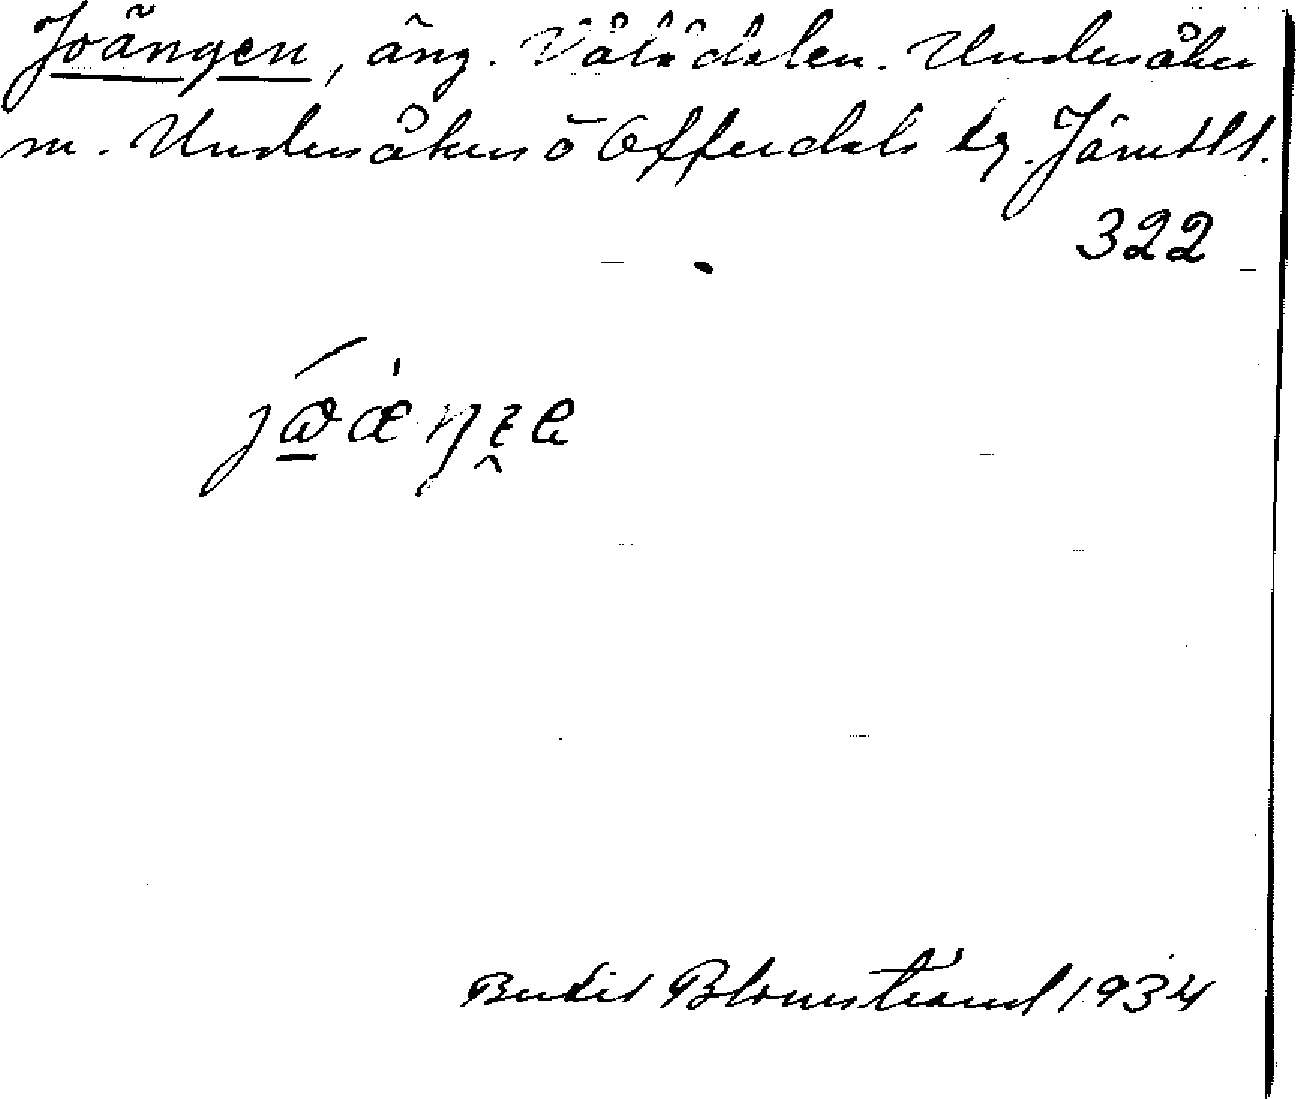 Joängen, äng. Vålådalen. Undersåker
m. Undersåkers o Offerdals tg. Jämtl.
322
Bertil Blomstrand 1934